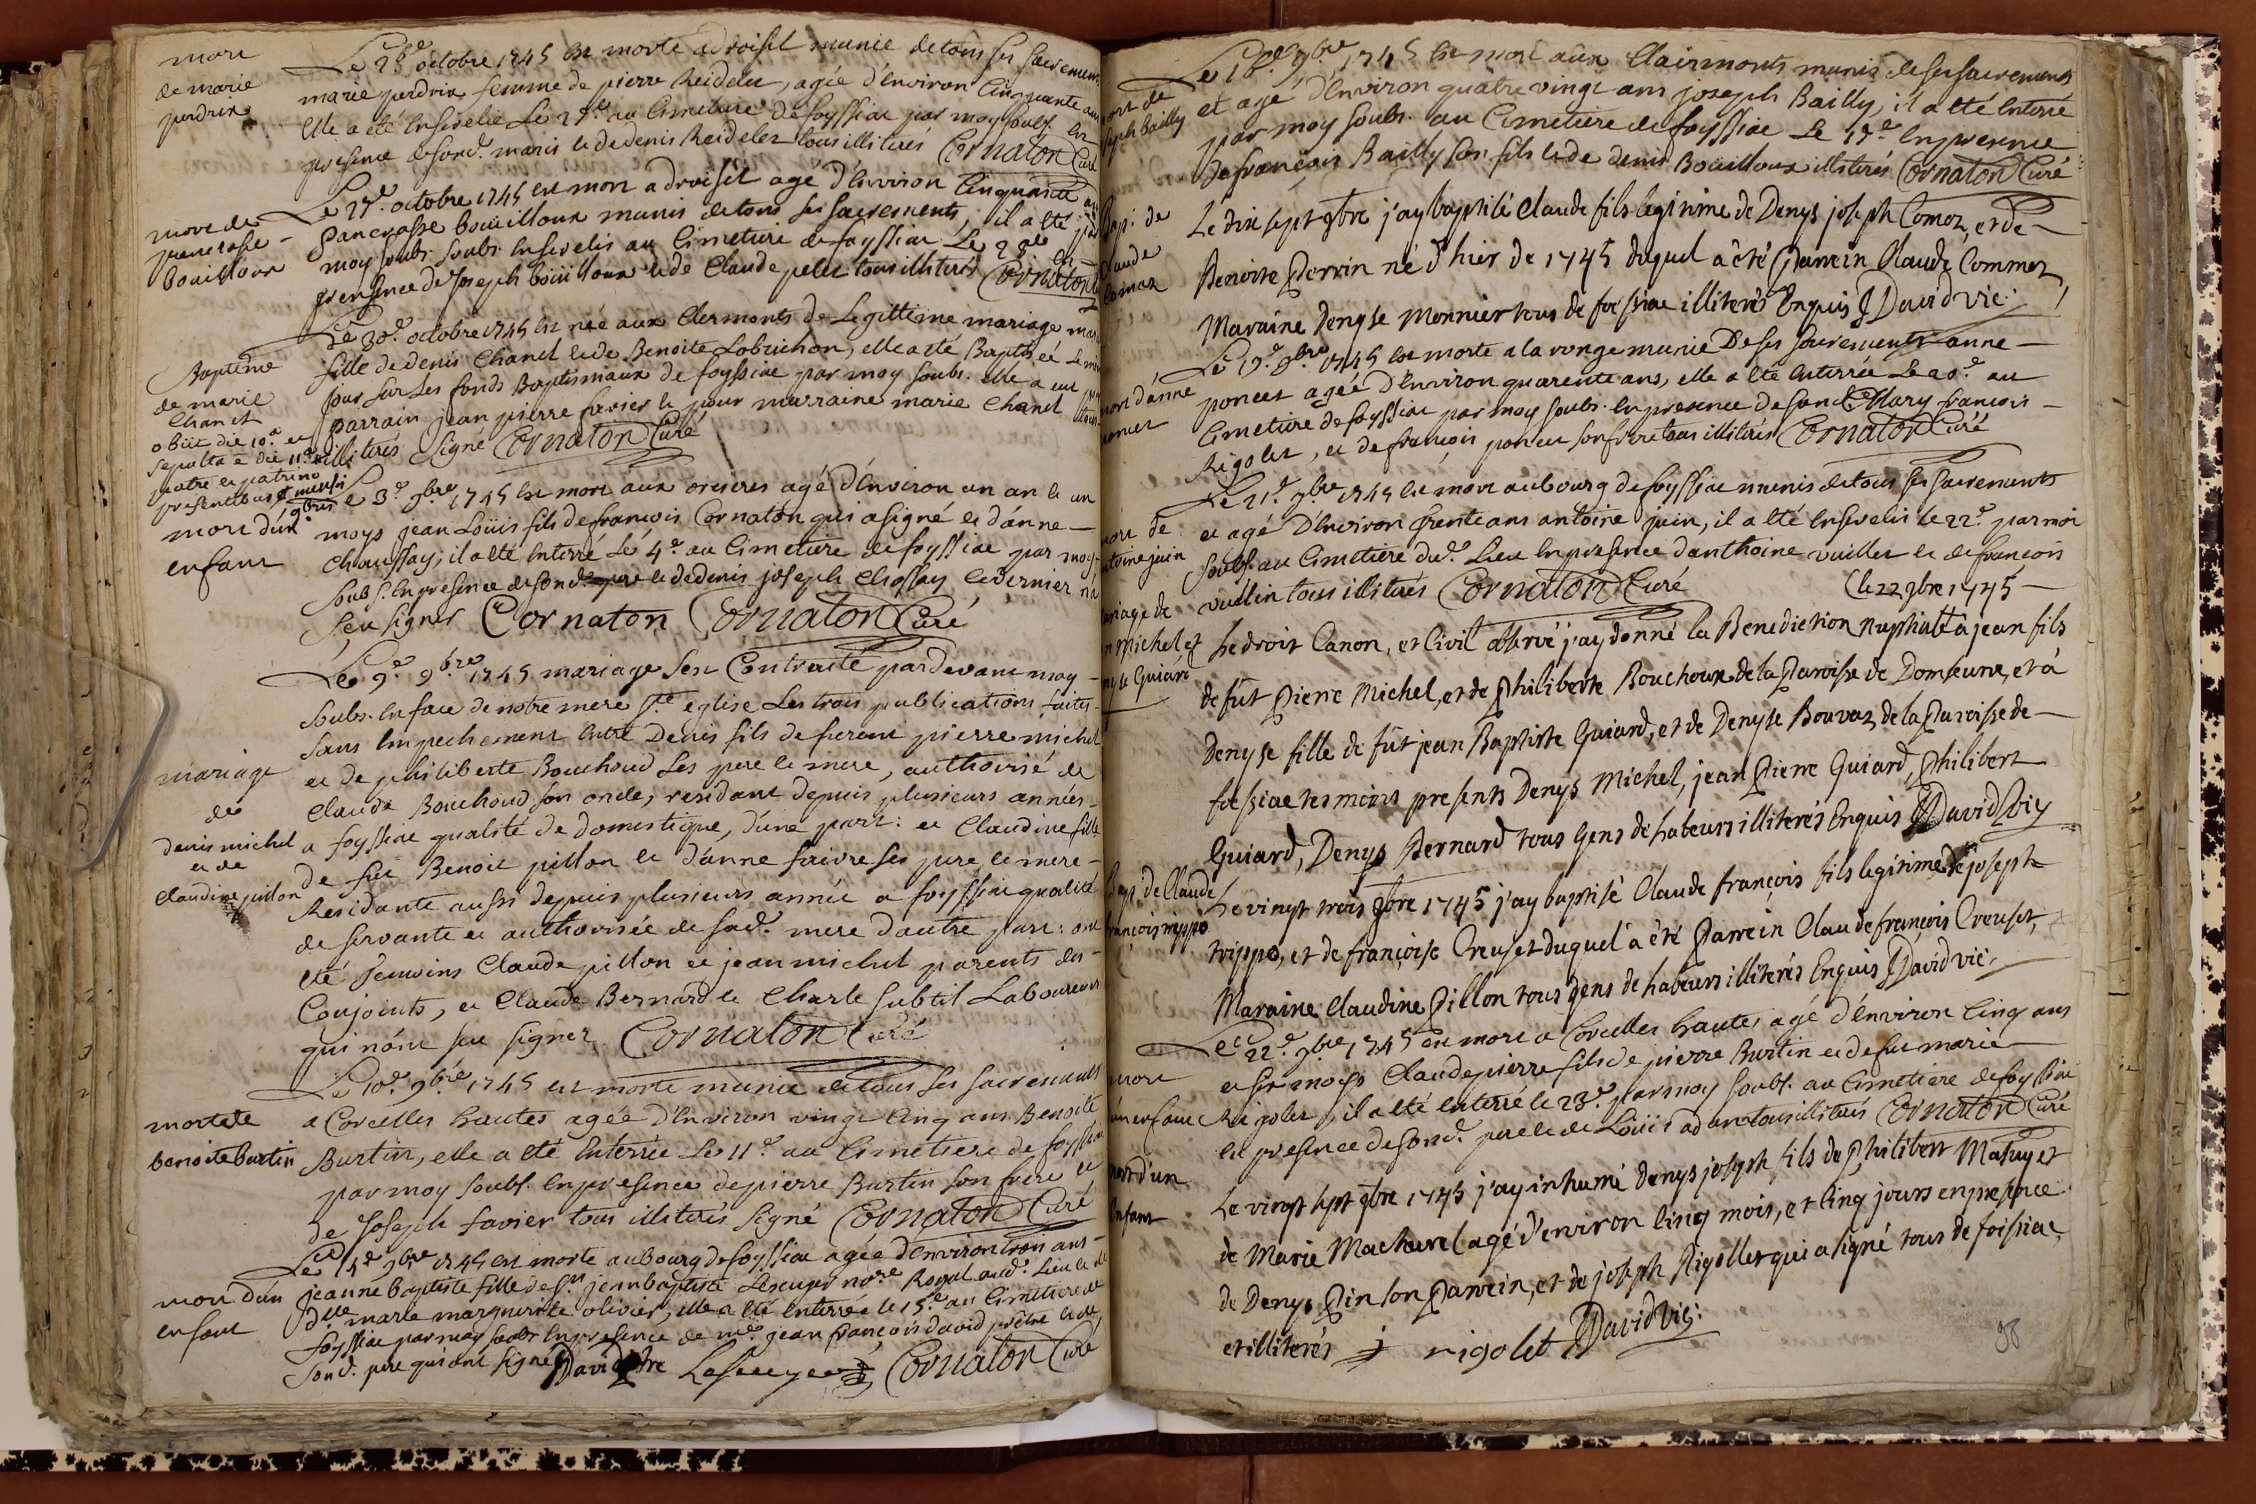 mort
de marie
perdrix
Le 26e octobre 1745 est morte a droisel munie de tous ses sacremens
marie perdrix femme de pierre Reidelet, agée d'Environ Cinquante ans
Elle a été Ensevelie Le 27e au Cimetiere de foyssiac par moy soubs. En
présence de sond. maris et de denis Reidelet tous illiterés Cornaton Curé
mort de
pancrasse
bouilloux
Le 27e octobre 1745 est mort a droisel agé d'Environ Cinquante ans
Pancrasse bouilloux munis de tous ses sacrements, il a été par
moy soubs. soubs. Ensevelis au Cimetiere de foyssiac Le 28e en
presence de Joseph boüilloux et de Claude pelet tous illiterés Cornaton
Baptême
de marie
Chanel
obiit die 10a et
sepulta e die 11a
patre et patrino
presentibus mensi
9bris
Le 30e octobre 1745 est née aux Clermonts de Legittime mariage marie
fille de denis Chanel et de Benoite Lobrichon, elle a été Baptisée Le même
jour sur Les fonds Baptismaux de foyssiac par moy soubs. elle a eut pour
parrain jean pierre favier et pour marraine marie Chanel tous
illiterés signé Cornaton Curé
mort d'un
enfant
Le 3e 9bre 1745 est mort aux orcieres agé d'Environ un an et un
moys jean Loüis fils de françois Cornaton qui a signé et d'anne
Choussay; il a été Enterré Le 4e au Cimetiere de foyssiac par moy
soubs. En presence de sond. pere et de denis joseph Chossay, le dernier n'a
sçeu signer Cornaton Cornaton Curé
mariage
de
denis michel
et de
Claudine pillon
Le 9e 9bre 1745 mariage s'est Contracté pardevant moy
soubs. En face de notre mere ste eglise Les trois publications faites
sans Empechement Entre Denis fils de feu pierre michel
et de philiberte Bouchoud ses pere et mere, authorisé de
Claude Bouchoud son oncle, residant depuis plusieurs années
a foyssiac qualité de domestique, d'une part: et Claudine fille
de feu Benoit pillon et d'anne faivre ses pere et mere
Residante aussi depuis plusieurs année a foyssiac qualité
de servante et authorisée de sad. mere d'autre part: ont
été temoins Claude pillon et jean michel parents des
Conjoints, et Claude Bernard et Charle subtil Laboureurs
qui n'ont sçu signer Cornaton Curé
mort de
benoite burtin
Le 10e 9bre 1745 est morte munie de tous ses sacrements
a Corcelles hautes agée d'Environ vingt Cinq ans Benoite
Burtin, elle a été Enterrée Le 11e au Cimetiere de foyssiac
par moy soubs. En presence de pierre Burtin son frere et
de Joseph favier tous illiterés signé Cornaton Curé
mort d'un
enfant
Le 14e 9bre 1745 est morte au bourg de foyssiac agée d'Environ trois ans
jeanne baptiste fille de sr jean baptiste Lescuyer nore Royal aud. Lieu et de
dlle marie marguerite olivier, elle a été Enterrée le 15e au Cimetiere de
foyssiac par moy soubs En presence de mre jean françois david prêtre et de
sond. pere qui ont signé David ptre Lescuyer Cornaton Curé
mort de
joseph bailly
Le 16e 9bre 1745 est mort aux Clairmonts munis de ses sacrements
et agé d'Environ quatre vingt ans joseph Bailly, il a été Enterré
par moy soubs. au Cimetiere de foyssiac Le 17e En presence
de françois Bailly son fils et de denis Boüilloux illiterés Cornaton Curé
Bap: de
Claude
Comoz
Le dix sept 9bre j'ay baptisé Claude fils legitime de Denys joseph Comoz, et de
Benoite Perrin né d'hier de 1745 duquel a été Parrein Claude Commoz,
Maraine Denyse Monnier tous de foissiac illiterés Enquis J David vic:
mort d'anne
poncet
Le 19e 9bre 1745 est morte a la ronge munie De ses sacrements anne
poncet agée d'Environ quarente ans, elle a été Enterrée Le 20e au
Cimetiere de foyssiac par moy soubs. En presence de sond. Mary françois
Rigolet, et de françois poncet son frere tous illiterés Cornaton Curé
mort de
antoine juin
Le 21e 9bre 1745 est mort au bourg de foyssiac munis de tous ses sacrements
et agé D'Environ trente ans antoine juin, il a été Enseveli le 22e par moi
soubs. au Cimetiere dud. Lieu En presence d'anthoine vuiller et de françois
vuillin tous illiterés Cornaton Curé
mariage de
jn Michel et
denyse Guiard
(Le 22 9bre 1745
Le droit Canon, et Civil observé j'ay donné la Benediction nuptialle a jean fils
de fût Pierre Michel, et de Philiberte Bouchoux de la Paroisse de Domsure, et à
Denyse fille de fût jean Baptiste Guiard, et de Denyse Bouvoz de la Paroisse de
foissiac temoins presents Denys Michel, jean Pierre Guiard, Philibert
Guiard, Denys Bernard tous gens de labeurs illiterés Enquis J David Vic
Bap: de Claude
françois trippo
Le vingt trois 9bre 1745 j'ay baptisé Claude françois fils legitime de joseph
trippo, et de françoise Creuset duquel a été Parrein Claude françois Creuset,
Maraine Claudine Pillon tous gens de labeurs illiterés Enquis J David vic.
mort
d'un enfant
Le 22e 9bre 1745 est mort a Corcelles hautes agé d'Environ Cinq ans
et six moys Claude pierre fils de pierre Burtin et de feu marie
Rigolet, il a été Enterré le 23e par moy soubs. au Cimetiere de foyssiac
En presence de sond. pere et de Loüis adam tous illiterés Cornaton Curé
mort d'un
Enfant
Le vingt sept 9bre 1745 j'ay inhumé denys joseph fils de Philibert Mafuy et
de Marie Macharel agé d'environ cinq mois, et Cinq jours en presence
de Denys Pin son Parrein, et de joseph Rigollet qui a signé tous de foissiac,
et illiterés j rigolet J David Vic:
98